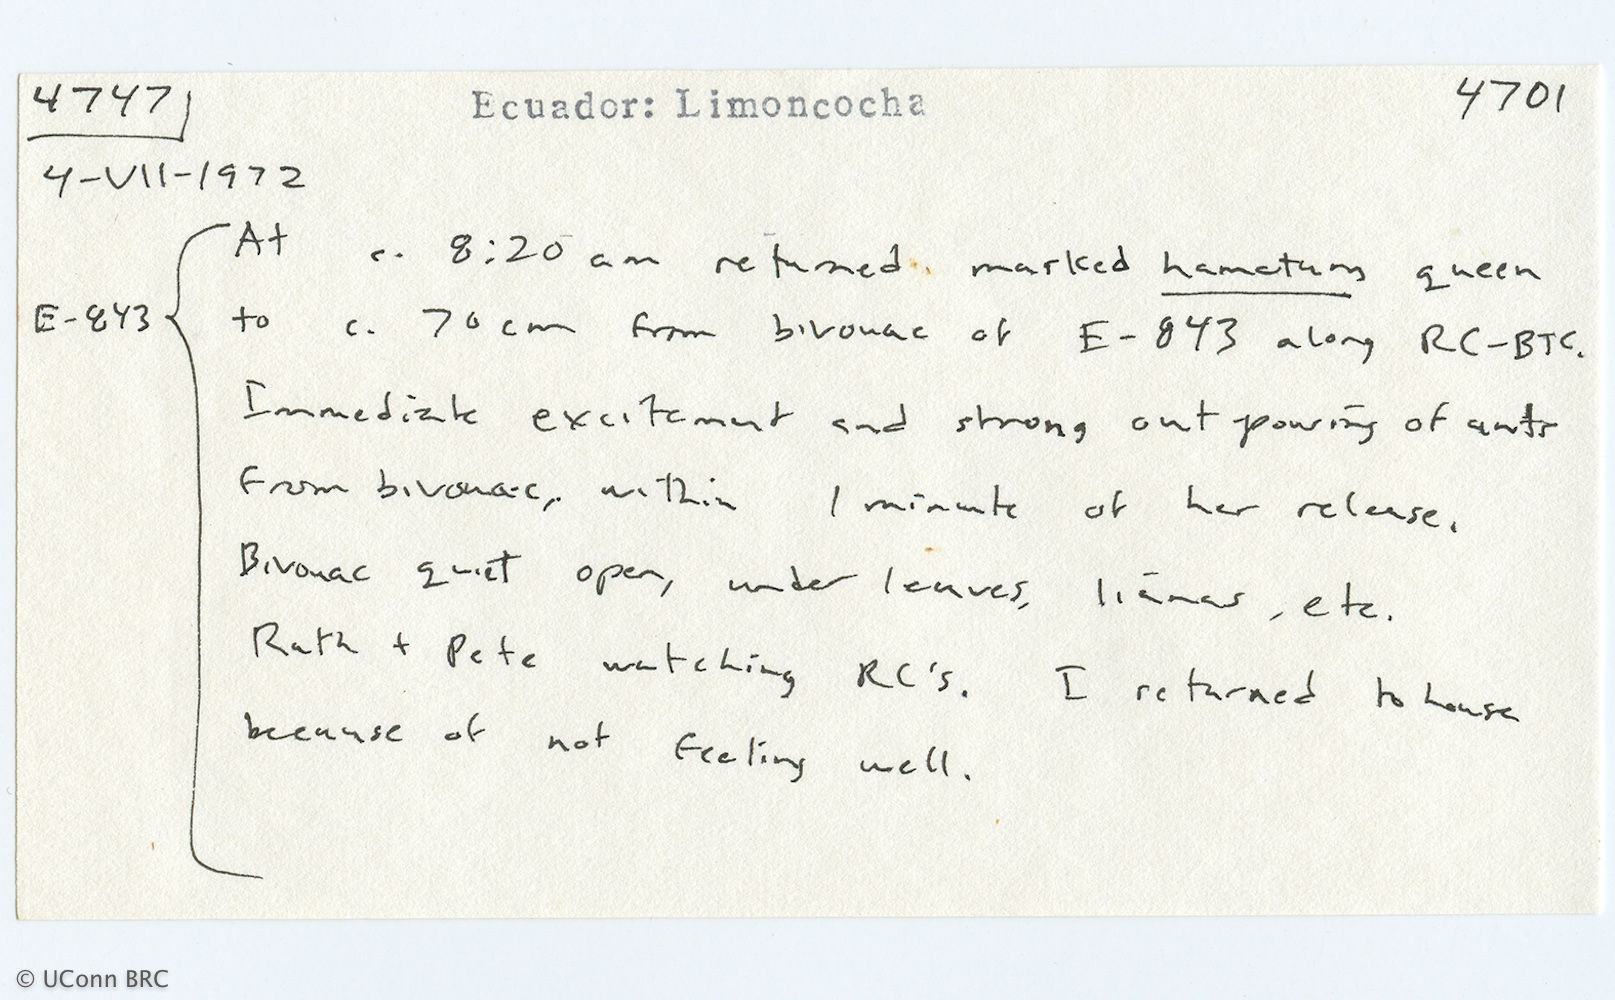 4747 Ecuador: Limoncocha 4701
4-VII-1972
At c. 8:20 am returned marked hamatum queen
E-843 to c. 70 cm from bivouac of E-843 along RC-BTC.
Immediate excitement and strong out pouring of ants
from bivouac, within 1 minute of her release.
Bivouac quiet open, under leaves, lianas, etc.
Ruth + Pete watching RC's. I returned to house
because of not feeling well.
© UConn BRC